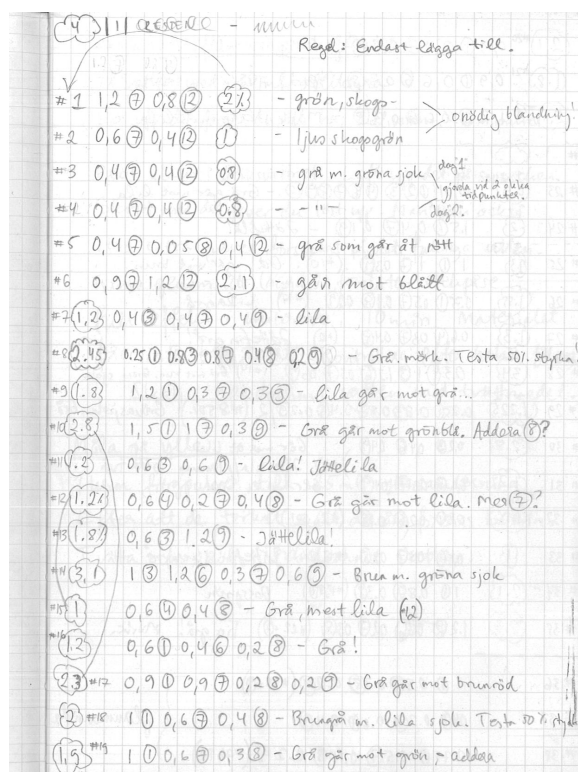 4 | 1 |
Regel: Endast lägga till.
#1 1,2 ⑦ 0,8 ⑫ 2% - grön, skogs-
onödig blandning!
#2 0,6 ⑦ 0,4 ⑫ 1 - ljus skogsgrön
#3 0,4 ⑦ 0,4 ⑫ 0.8 - grå m. gröna sjok
dag 1
gjorda vid 2 olika
tidpunkter.
#4 0,4 ⑦ 0,4 ⑫ 0.8 - -"-
dag 2.
#5 0,4 ⑦ 0,05 ⑧ 0,4 ⑫ - grå som går åt rött
#6 0,9 ⑦ 1,2 ⑫ 2,1 - går mot blått
#7 1,2 0,4 ③ 0,4 ⑦ 0,4 ⑨ - lila
#8 2.45 0.25 ① 0.8 ③ 0.8 ⑦ 0.4 ⑧ 0,2 ⑨ - Grå. mörk. Testa 50% styrka!
#9 1.8 1,2 ① 0,3 ⑦ 0,3 ⑨ - lila går mot grå...
#10 2.8 1,5 ① 1 ⑦ 0,3 ⑨ - Grå går mot grönblå. Addera ⑧?
#11 1.2 0,6 ③ 0,6 ⑨ - Lula! Jättelila
#12 1.2% 0,6 ④ 0,2 ⑦ 0,4 ⑧ - Grå går mot lila. Mer ⑦?
#13 1.8% 0,6 ③ 1.2 ⑨ - Jättelila!
#14 3,1 1 ③ 1,2 ⑥ 0,3 ⑦ 0,6 ⑨ - Brun m. gröna sjok
#15 1 0,6 ④ 0,4 ⑧ - Grå, mest lila (12)
#16 1.2 0,6 ① 0,4 ⑥ 0,2 ⑧ - Grå!
2,3 #17 0,9 ① 0,9 ⑦ 0,2 ⑧ 0,2 ⑨ - Grå går mot brunröd
2 #18 1 ① 0,6 ⑦ 0,4 ⑧ - Brungrå m. lila sjok. Testa 50% styrka
1,9 #19 1 ① 0,6 ⑦ 0,3 ⑧ - Grå går mot grön, - addera